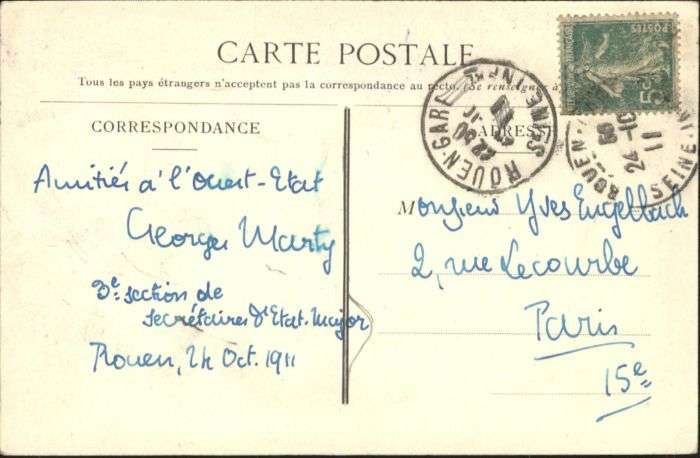 CARTE POSTALE
Tous les pays étrangers n'acceptent pas la correspondance au recto. (Se renseigner à
CORRESPONDANCE
ADRESSE
Amitiés à l'Ouest-Etat
Georges Marty
3e section de
secrétaires d'Etat-Major
Rouen, 24 Oct. 1911
Monsieur Yves Engelbach
2, rue Lecourbe
Paris
15e
ROUEN-GARE
SEINE INFRE
POSTES
5c
ROUEN
SEINE
24
11